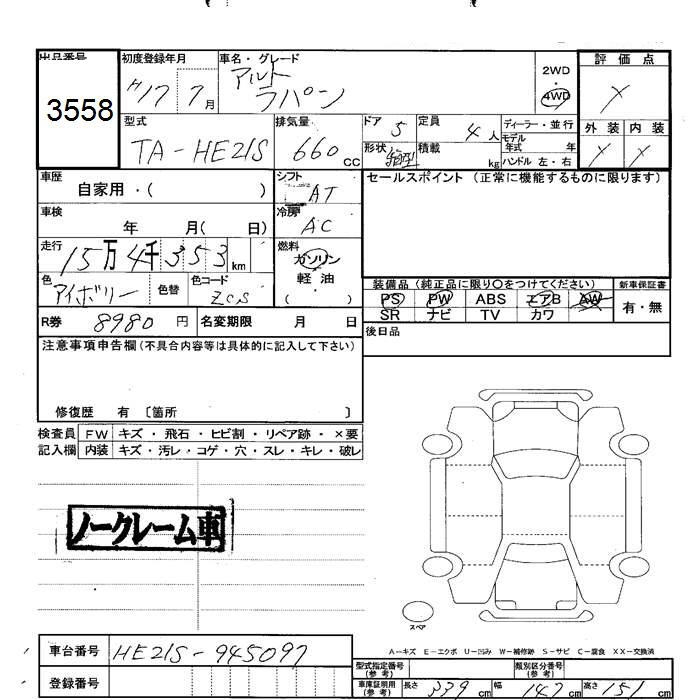 出品番号 初度登録年月 車名・グレード 評価点
3558 H17 7月 アルト ラパン 2WD・4WD X
型式 排気量 ドア 5 定員 4人 ディーラー・並行 外装 内装
TA-HE21S 660cc 形状 積載 kg モデル年式 年 X X
ハンドル 左・右
車歴 自家用・( ) シフト AT セールスポイント(正常に機能するものに限ります)
車検 年 月( 日) 冷房 AC
走行 15万4千353km 燃料 ガソリン
色 アイボリー 色替 色コード ZCS 軽油 ( )
装備品(純正品に限り○をつけてください) 新車保証書
PS PW ABS エアB AW 有・無
SR ナビ TV カワ
R券 8980円 名変期限 月 日 後日品
注意事項申告欄(不具合内容等は具体的に記入して下さい)
修復歴 有〔箇所 〕
検査員 FW キズ・飛石・ヒビ割・リペア跡・×要
記入欄 内装 キズ・汚レ・コゲ・穴・スレ・キレ・破レ
ノークレーム車
スペア
A-キズ E-エクボ U-凹み W-補修跡 S-サビ C-腐食 XX-交換済
車台番号 HE21S-945097
型式指定番号(参考) 類別区分番号(参考)
登録番号 車庫証明用(参考) 長さ 339cm 幅 147cm 高さ 151cm